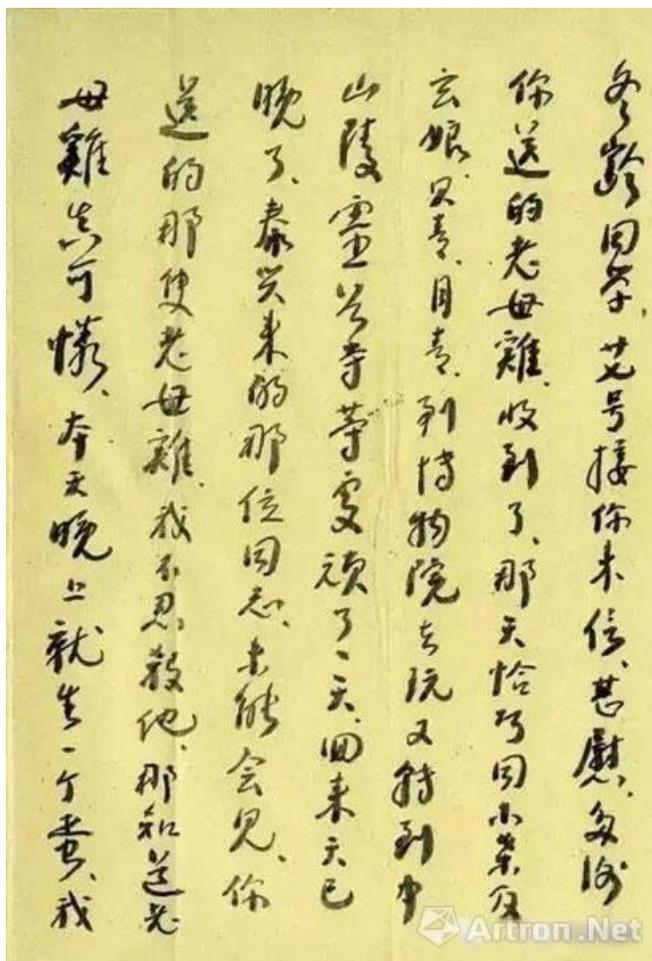 冬齡同学、廿七号接你来信、甚慰、多谢
你送的老母雞、收到了、那天恰巧因小
到博物院去玩又转到中
山陵灵谷寺等处顽了一天、回来天已
晚了、泰兴来的那位同志、未能会见、你
送的那隻老母雞、我不忍殺他、那知這老
母雞真可憐、本天晚上就生一个蛋、我
Artron.Net